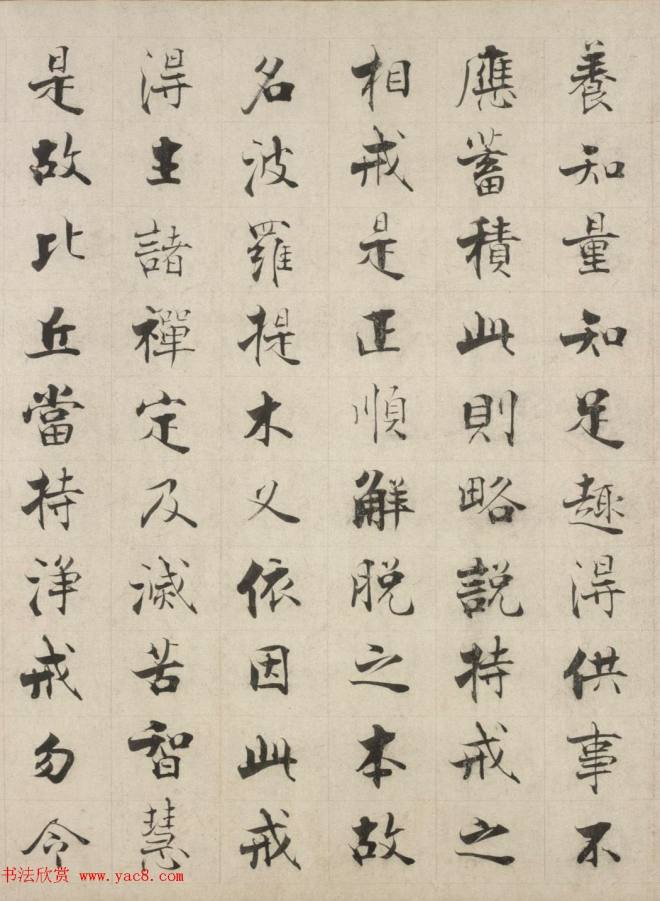 養知量知足趣得供事不
應蓄積此則略說持戒之
相戒是正順解脫之本故
名波羅提木叉依因此戒
得生諸禪定及滅苦智慧
是故比丘當持淨戒勿令
书法欣赏 www.yac8.com